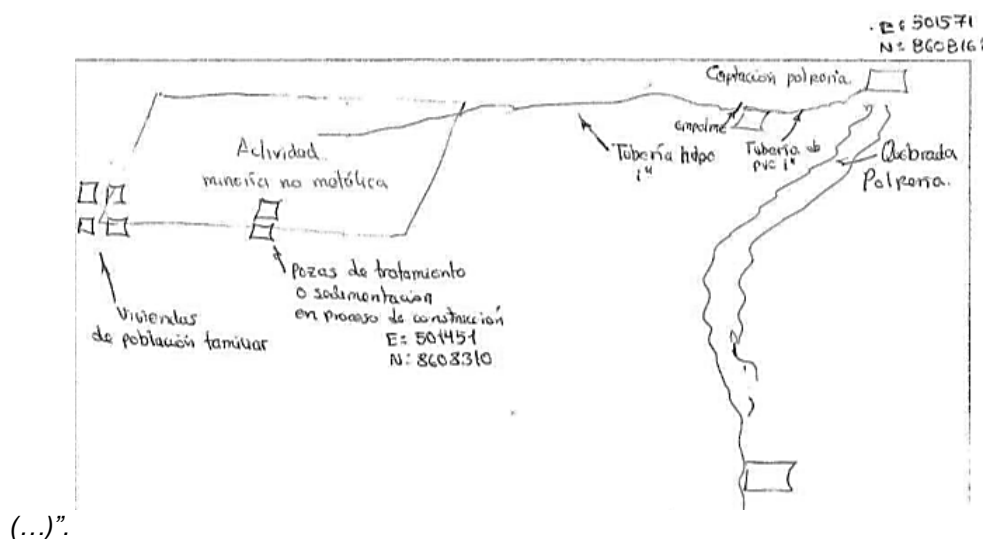 E: 501571
N: 860816
Captación polperia
empalme
Tubería hdpe
1"
Tubería de
PVC 1"
Quebrada
Polperia.
Actividad
minería no metálica
Pozas de tratamiento
o sedimentación
en proceso de construcción
E: 501451
N: 8608310
Viviendas
de población familiar
(...)”.